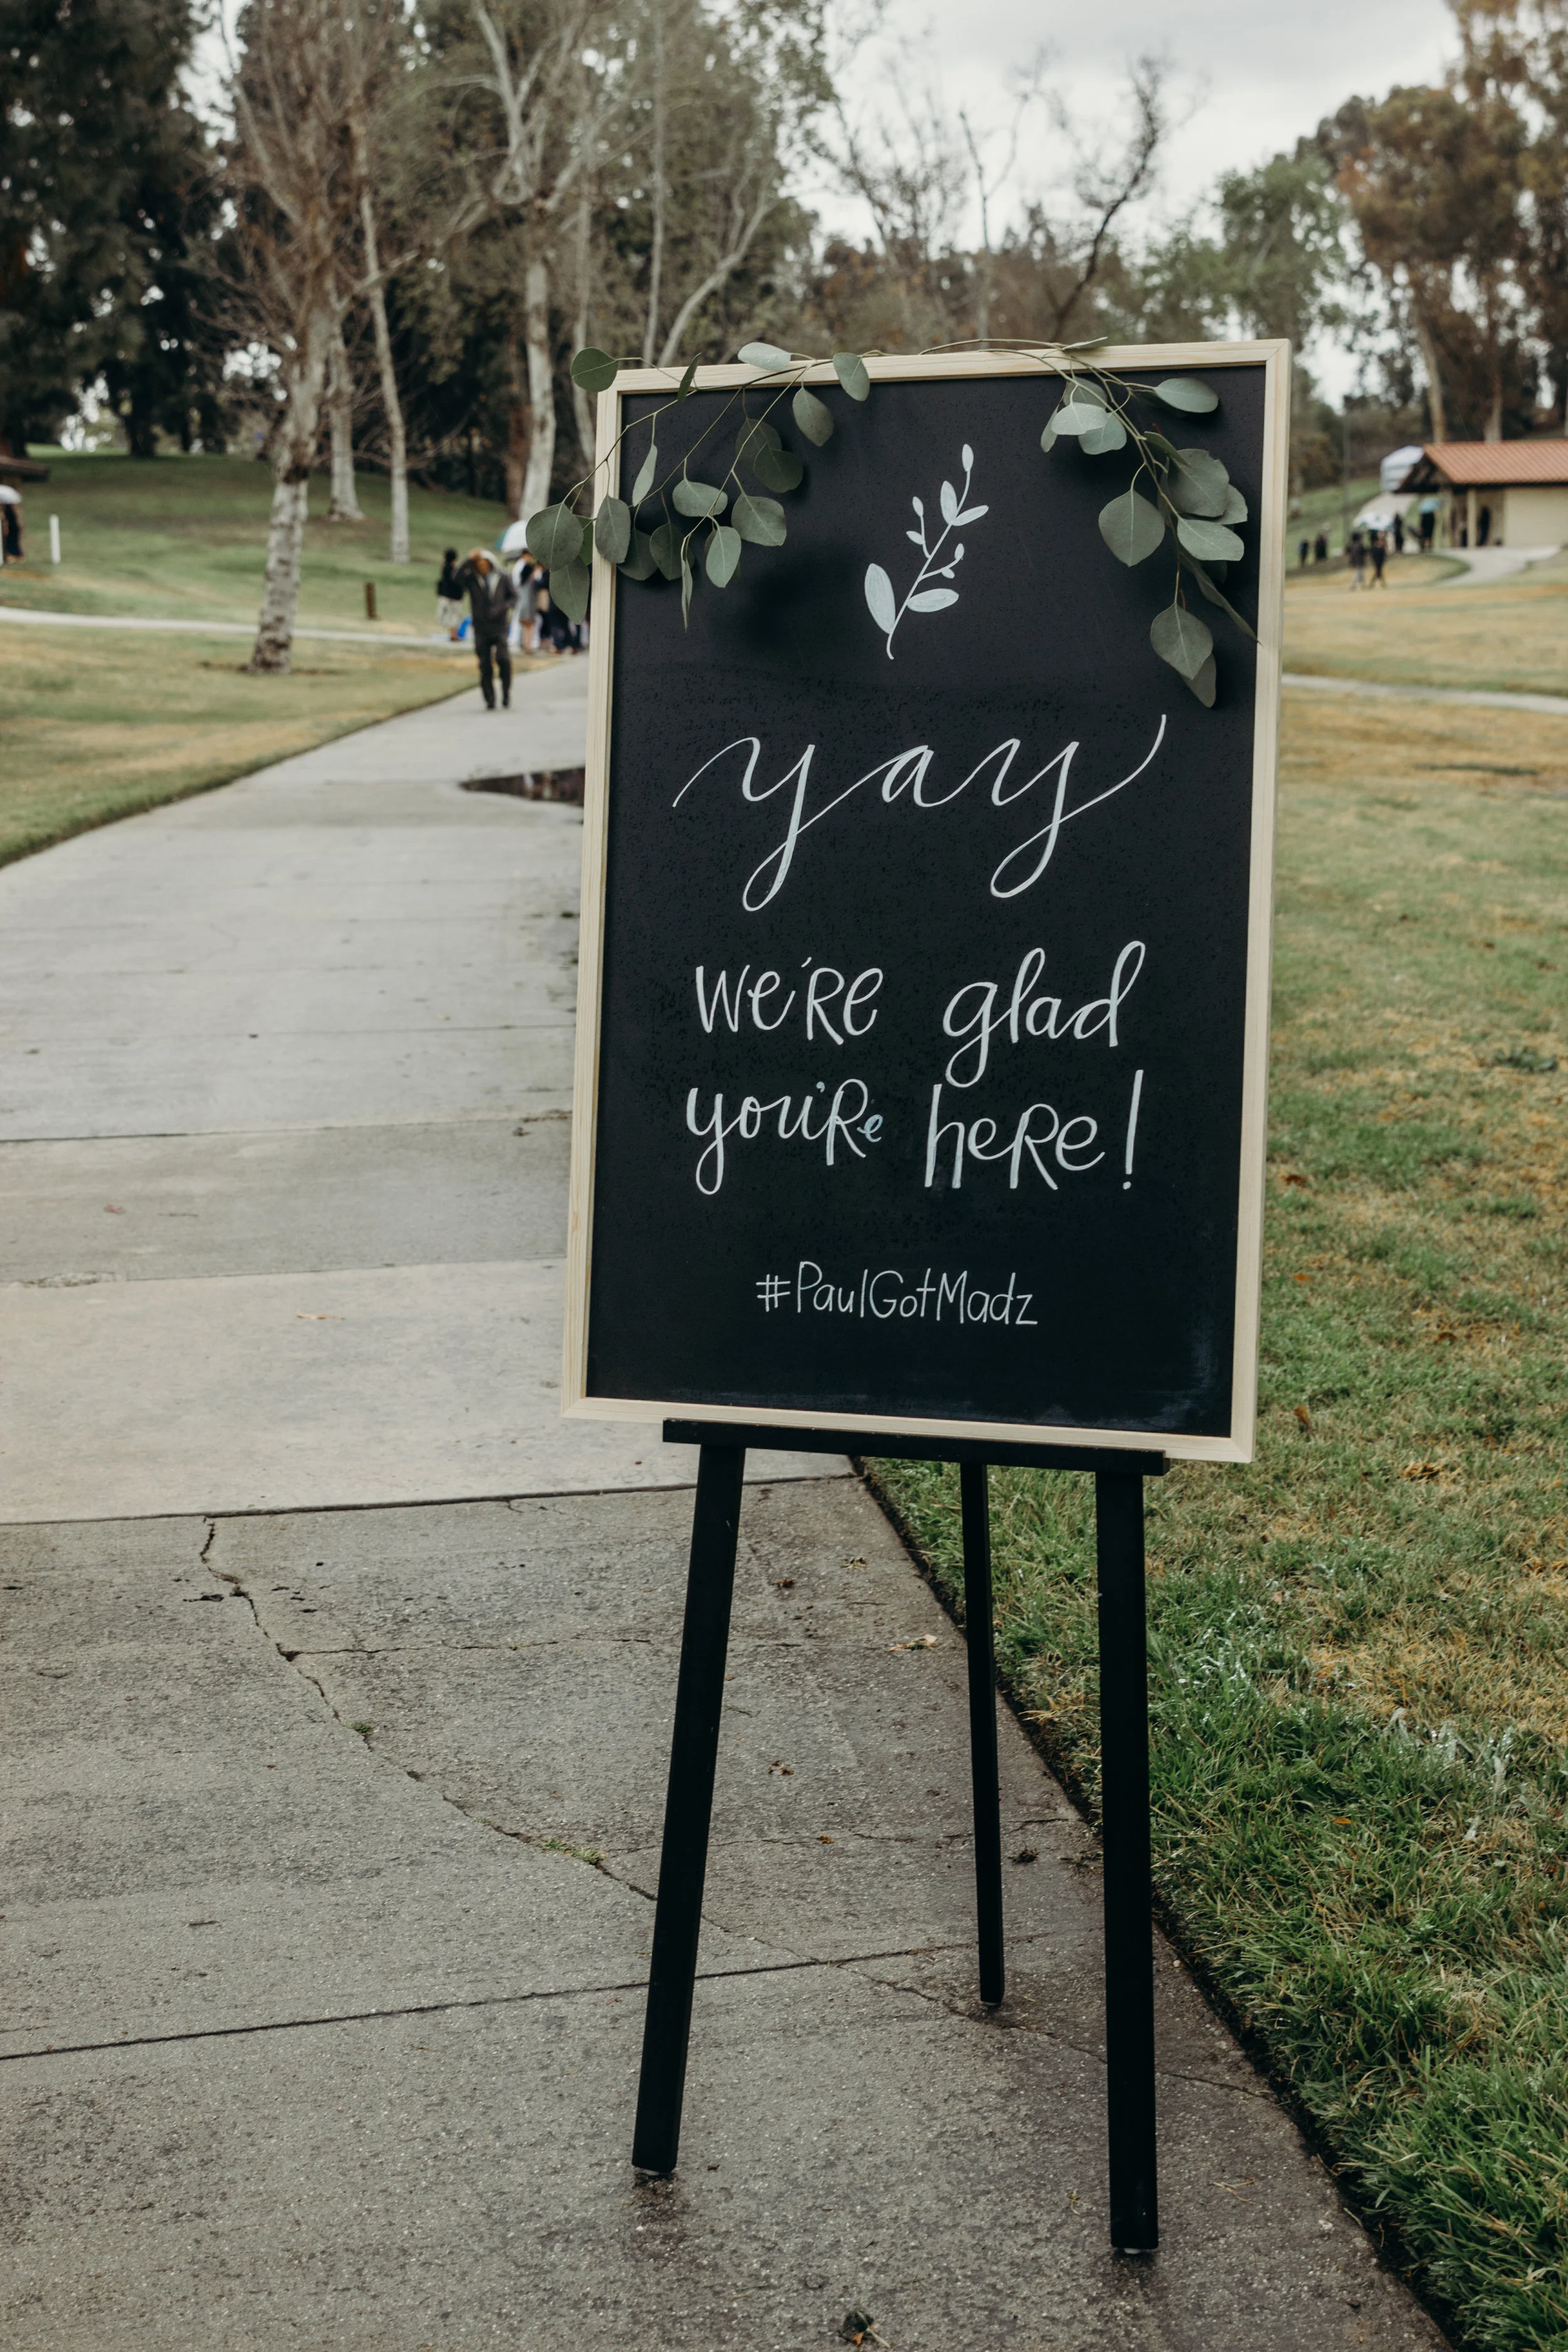 yay
we're glad
you're here!
#PaulGotMadz